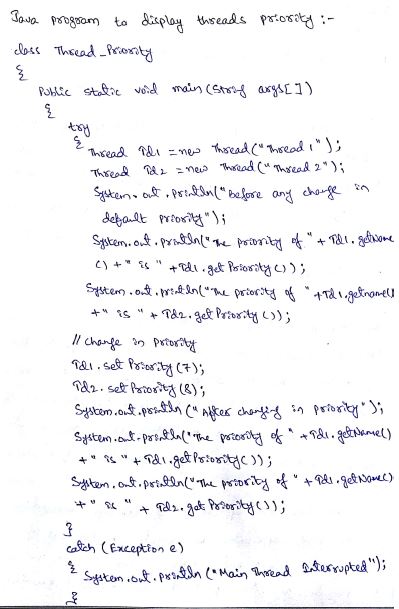 Java program to display threads priority :-
class Thread_Priority
{
Public static void main(String args[])
{
try
{ Thread Td1 = new Thread("Thread 1");
Thread Td2 = new Thread("Thread 2");
System.out.println("Before any change in
default priority");
System.out.println("The priority of " + Td1.getName
() + " is " + Td1.get Priority ());
System.out.println("The priority of " + Td1.getname()
+ " is " + Td2.get Priority ());
// change in priority
Td1.set Priority (7);
Td2.set Priority (8);
System.out.println ("After changing in priority");
System.out.println("The priority of " + Td1.getName()
+ " is " + Td1.getPriority());
System.out.println("The priority of " + Td1.getName()
+ " is " + Td2.get Priority());
}
catch (Exception e)
{ System.out.println ("Main Thread Interrupted");
}